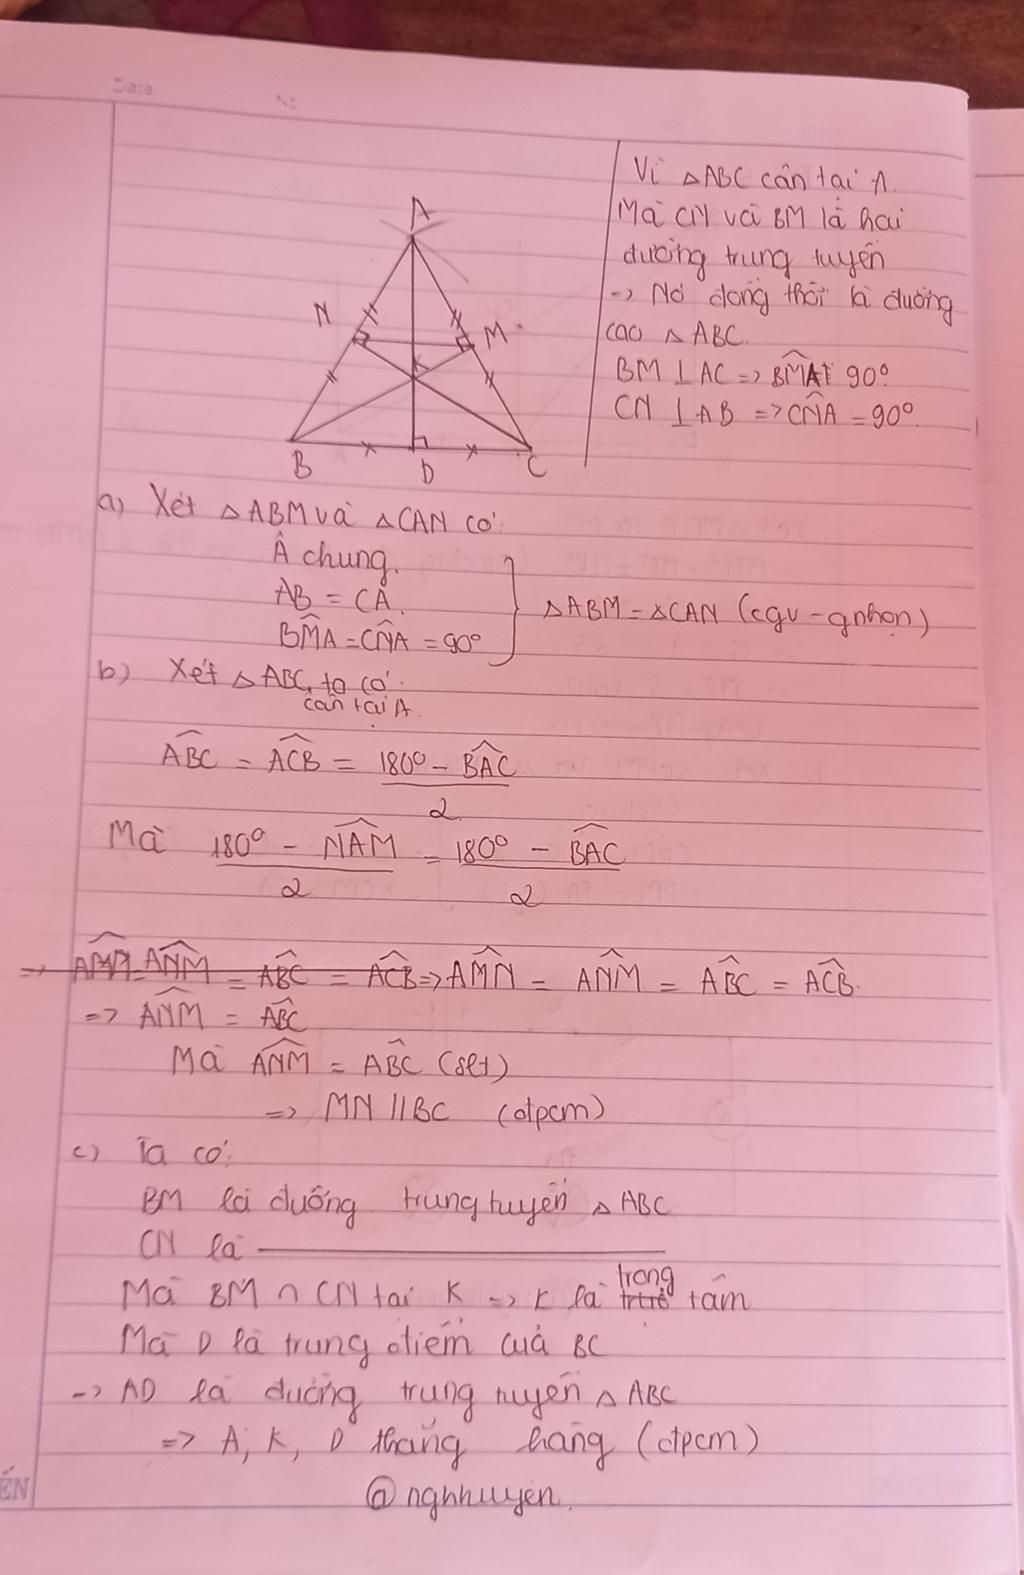 Date
No
Vì △ABC cân tại A.
Mà CN và BM là hai
đường trung tuyến
-> Nó đồng thời là đường
cao △ABC.
BM ⊥ AC => BMA = 90°
CN ⊥ AB => CNA = 90°.
A
N
M
K
B
D
C
a) Xét △ABM và △CAN có:
Â chung.
AB = CA.
BMA = CNA = 90°
△ABM = △CAN (cgv - gnhọn)
b) Xét △ABC, ta có:
cân tại A.
ABC = ACB = 180° - BAC
2
Mà 180° - NAM = 180° - BAC
2 2
=> AMN = ANM = ABC = ACB => AMN = ANM = ABC = ACB.
=> ANM = ABC
Mà ANM = ABC (slt)
=> MN // BC (đtpcm)
c) Ta có:
BM là đường trung tuyến △ABC
CN là
Mà BM ∩ CN tại K -> K là trọng tâm
Mà D là trung điểm của BC
-> AD là đường trung tuyến △ABC
=> A, K, D thẳng hàng (đtpcm)
@nghhuyen.
ẾN